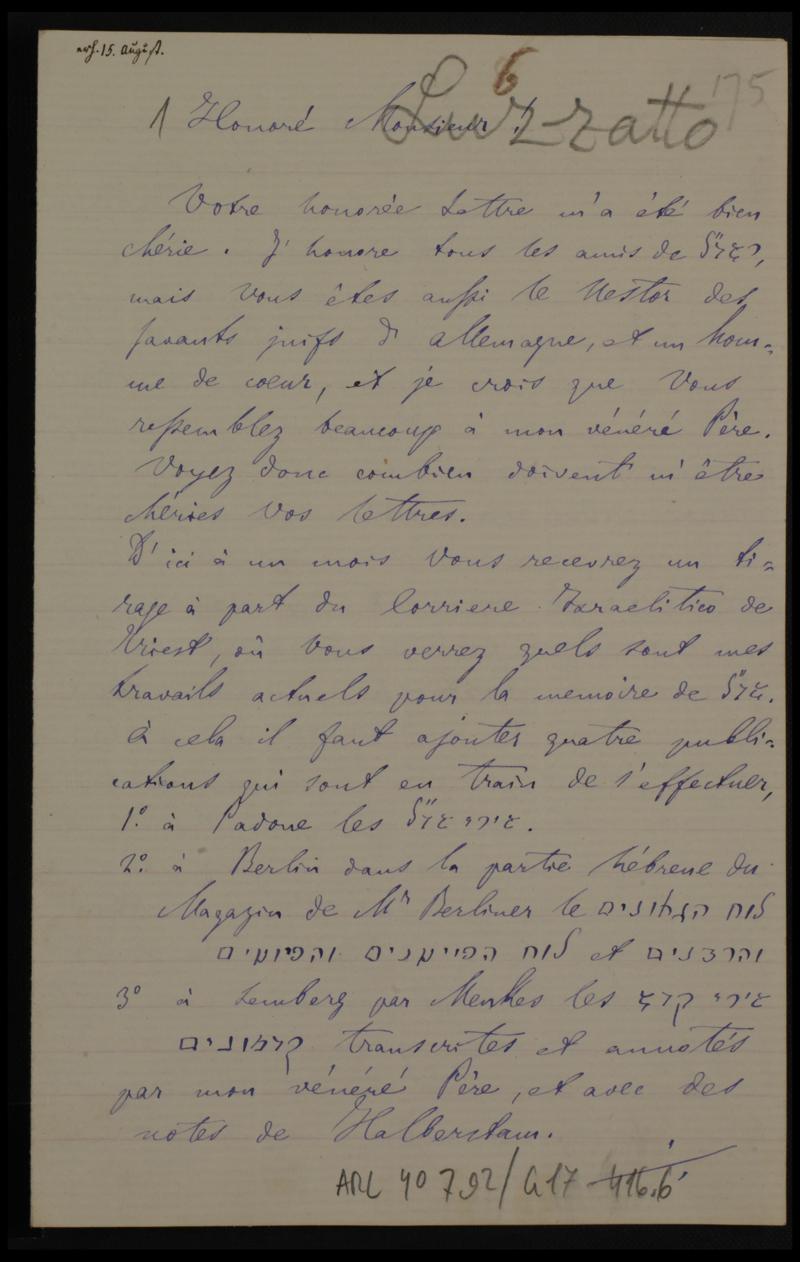 erh. 15. August.
6
175
Luzzatto
1 Honoré Monsieur !
Votre honorée Lettre m'a été bien
chérie. J'honore tous les amis de שד״ל,
mais Vous êtes aussi le Nestor des
savants juifs d'Allemagne, et un hom=
me de coeur, et je crois que Vous
ressemblez beaucoup à mon vénéré Père.
Voyez donc combien doivent m'être
chéries Vos lettres.
D'ici à un mois Vous recevrez un ti=
rage à part du Corriere Israelitico de
Triest, où Vous verrez quels sont mes
travails actuels pour la memoire de שד״ל.
À cela il faut ajouter quatre publi=
cations qui sont en train de s'effectuer,
1.º à Padoue les שירי שד״ל.
2.º à Berlin dans la partie hébreue du
Magazin de Mr Berliner le לוח הגאונים
והרבנים et לוח הפייטנים והפיוטים
3º à Lemberg par Menkes les שירי קדש
קדמונים transcrites et annotés
par mon vénéré Père, et avec des
notes de Halberstam.
ARC 4º 792/G17 416.6